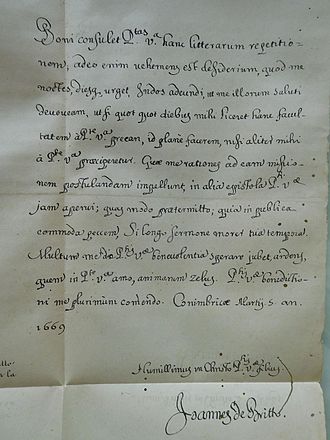 Boni consulet P.tas V.a hanc litterarum repetitio-
nem, adeo enim vehemens est desiderium, quod me
noctes, diesq. urget, Indos adeundi, et me illorum saluti
devovendi, ut si quot quot diebus mihi liceret hanc facul-
tatem à P.te V.a precari, id planè facerem, nisi aliter mihi
à P.te V.a præciperetur. Quæ me rationes ad eam missio-
nem postulandam impellunt, in aliâ epistola P.ti V.æ
jam aperui; quas modo prætermitto, quia in publica
commoda peccem Si longo sermone morer tua tempora.
Multum me de P.tis V.æ benevolentia sperare jubet, ardens,
quem in P.te V.a amo, animarum zelus. P.tis V.æ benedictio-
ni me plurimùm comendo. Conimbricæ Martij 5. an.
1669
Humillimus in Christo P.tis V.æ filius
Joannes de Britto.